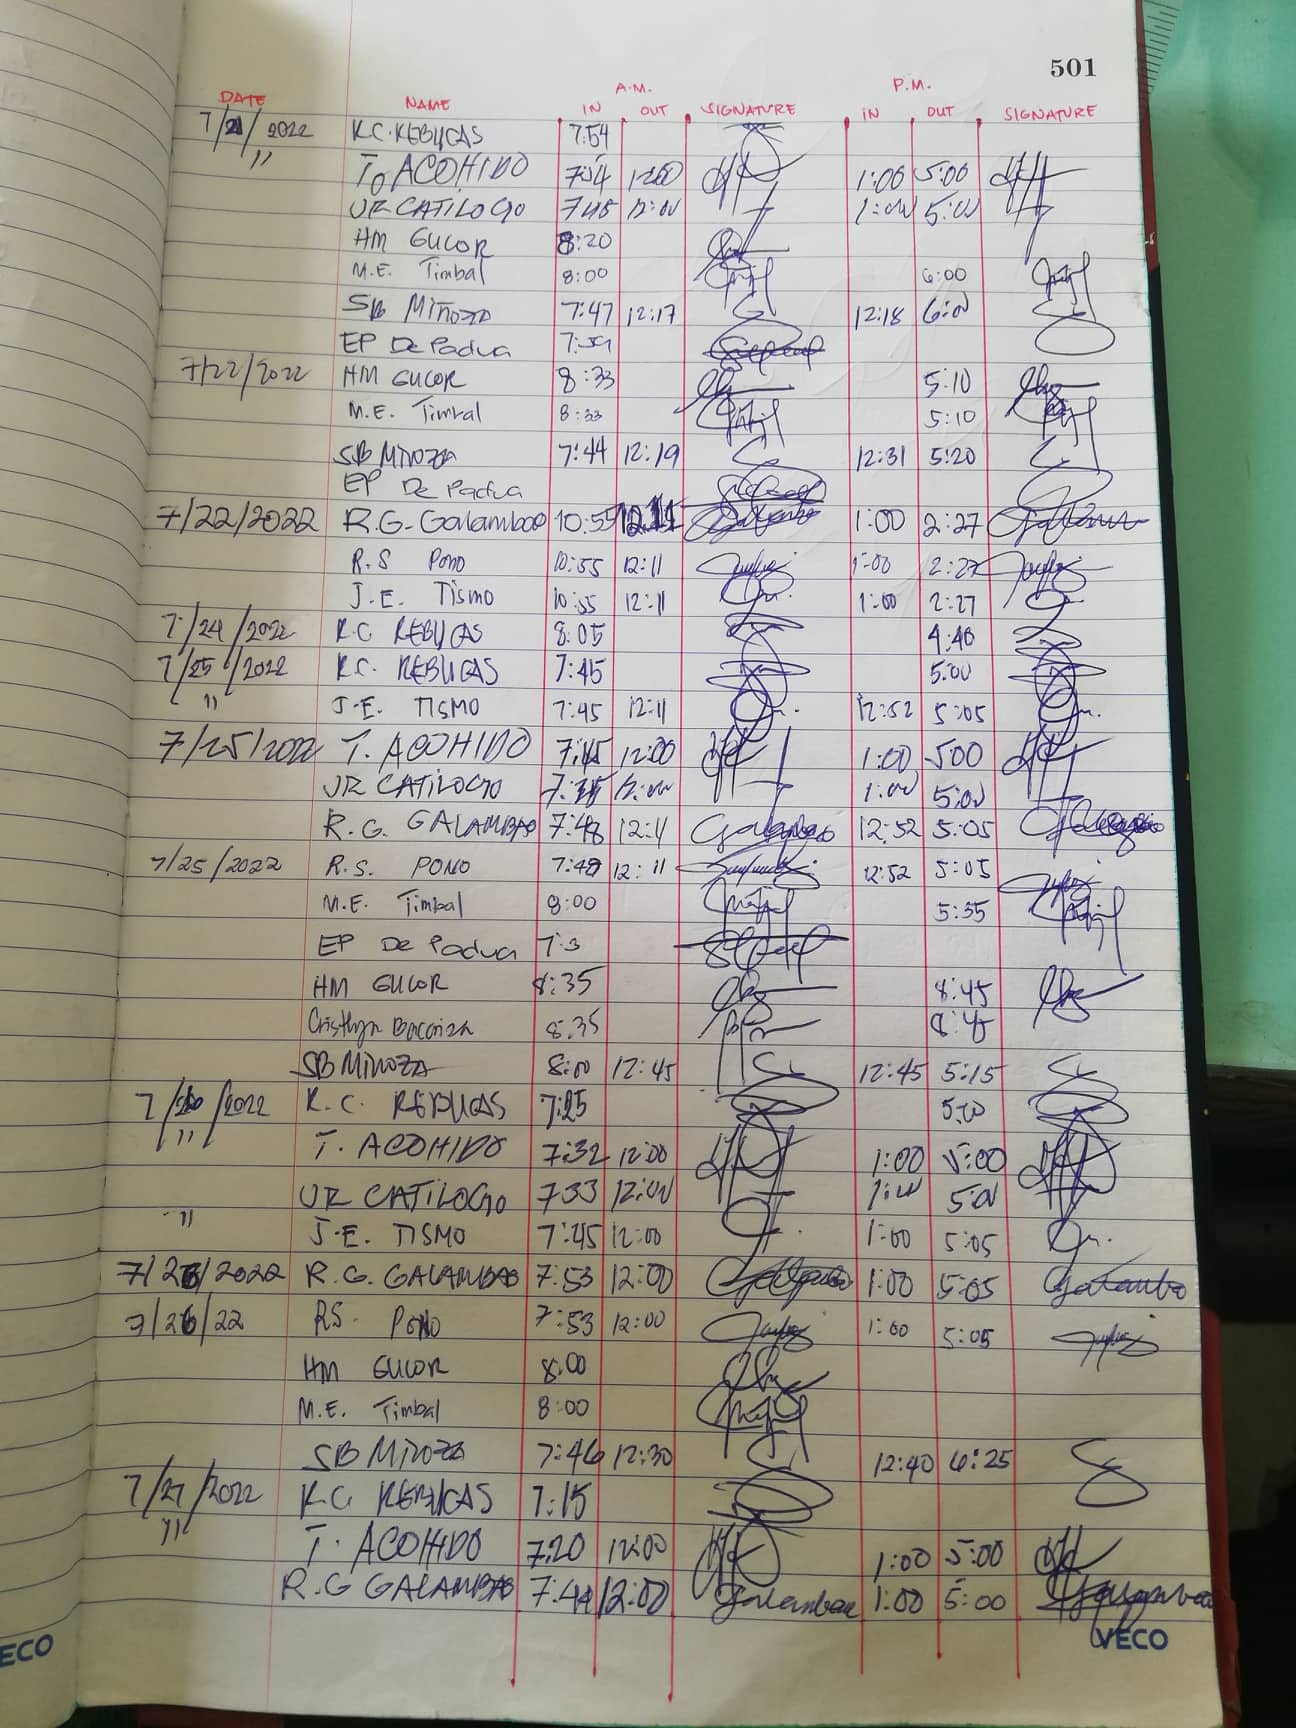 501
A.M. P.M.
DATE NAME IN OUT SIGNATURE IN OUT SIGNATURE
7/21/2022 K.C. REBUCAS 7:54
" T. ACOHIDO 7:54 12:00 1:00 5:00
JR CATILOGO 7:48 12:00 1:00 5:00
HM GUCOR 8:20
M.E. Timbal 8:00 6:00
SB MIÑOZA 7:47 12:17 12:18 6:00
EP De Padua 7:59
7/22/2022 HM GUCOR 8:33 5:10
M.E. Timbal 8:33 5:10
SB MIÑOZA 7:44 12:19 12:31 5:20
EP De Padua
7/22/2022 R.G. Galambao 10:55 12:11 1:00 2:27
R.S Pono 10:55 12:11 1:00 2:27
J.E. Tismo 10:55 12:11 1:00 2:27
7/24/2022 K.C. REBUCAS 8:05 4:40
7/25/2022 K.C. REBUCAS 7:45 5:00
" J.E. TISMO 7:45 12:11 12:52 5:05
7/25/2022 T. ACOHIDO 7:45 12:00 1:00 500
JR CATILOGO 12:00 1:00 5:00
R.G. GALAMBAO 7:48 12:11 12:52 5:05
7/25/2022 R.S. PONO 7:48 12:11 12:52 5:05
M.E. Timbal 8:00 5:35
EP De Padua 7:3
HM GUCOR 8:35 8:45
Cristhyn 8:35 8:45
SB MINOZA 8:00 12:45 12:45 5:15
7/26/2022 K.C. REBUCAS 7:25 5:00
" T. ACOHIDO 7:32 12:00 1:00 5:00
JR CATILOGO 733 12:00 1:00 5:00
" J.E. TISMO 7:45 12:00 1:00 5:05
7/26/2022 R.G. GALAMBAO 7:53 12:00 1:00 5:05
7/26/22 RS. PONO 7:53 12:00 1:00 5:05
HM GUCOR 8:00
M.E. Timbal 8:00
SB MINOZA 7:46 12:30 12:40 6:25
7/27/2022 K.C. REBUCAS 7:15
" T. ACOHIDO 7:20 12:00 1:00 5:00
R.G GALAMBAO 7:44 12:00 Galambao 1:00 5:00
ECO VECO